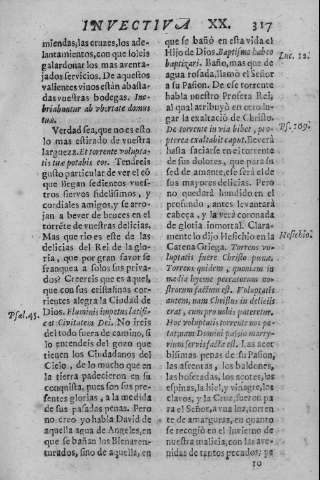 INVECTIVA XX. 317
miendas, las cruzes, los ade-
lantamientos, con que soleis
galardonar los mas aventa-
jados servicios. De aquellos
valientes vinos están abasta-
das vuestras bodegas. Ine-
briabuntur ab vbertate domus
tuæ.
Verdad sea, que no es esto
lo mas estirado de vuestra
largueza. Et torrente volupta-
tis tuæ potabis eos. Tendreis
gusto particular de ver el có
que llegan sedientos vues-
tros siervos fidelissimos, y
cordiales amigos, y se arro-
jan a bever de bruces en el
torrēte de vuestras delicias.
Mas que rio es este de las
delicias del Rei de la glo-
ria, que por gran favor se
franquea a solos sus priva-
dos? Creereis que es aquel,
que con sus cristalinas cor-
rientes alegra la Ciudad de
Dios. Fluminis impetus lætifi-
cat Civitatem Dei. No ireis
del todo fuera de camino, si
lo entendeis del gozo que
tienen los Ciudadanos del
Cielo, de lo mucho que en
la tierra padecieron en su
conquista, pues son sus pre-
sentes glorias, a la medida
de sus passadas penas. Pero
no creo yo habla David de
aquella agua de Angeles, en
que se bañan los Bienaven-
turados, sino de aquella, en
Psal. 45.
que se bañó en esta vida el
Hijo de Dios. Baptismo habeo
baptizari. Baño, mas que de
agua rosada, llamó el Señor
a su Passion. De ese torrente
habla nuestro Profeta Rei,
al qual atribuyó en otro lu-
gar la exaltació de Christo.
De torrente in via bibet, pro-
pterea exaltabit caput. Beverá
hasta saciarse en el torrente
de sus dolores, que para su
sed de amante, ese será el de
sus mayores delicias. Pero
no quedará hundido en el
profundo, antes levantará
cabeça, y la verá coronada
de gloria inmortal. Clara-
mente lo dijo Hesichio en la
Catena Griega. Torrens vo-
luptatis fuere Christo pœnæ.
Torrens quidem, quoniam in
medio hyeme peccatorum no-
strorum factum est. Voluptatis
autem, nam Christus in delicijs
erat, cum pro nobis pateretur.
Hoc voluptatis torrente nos po-
tat, quum Domini passio marty-
rium servis facta est. Las acer-
bissimas penas de su Passion,
las afrentas, los baldones,
las bofetadas, los açotes, las
espinas, la hiel, y vinagre, los
clavos, y la Cruz, fueron pa-
ra el Señor, a una luz, torren-
te de amarguras, en quanto
se recogió en el Invierno de
nuestra malicia, con las ave-
nidas de tantos pecados; pe
ro
Luc. 12.
Ps. 109.
Hesichio.